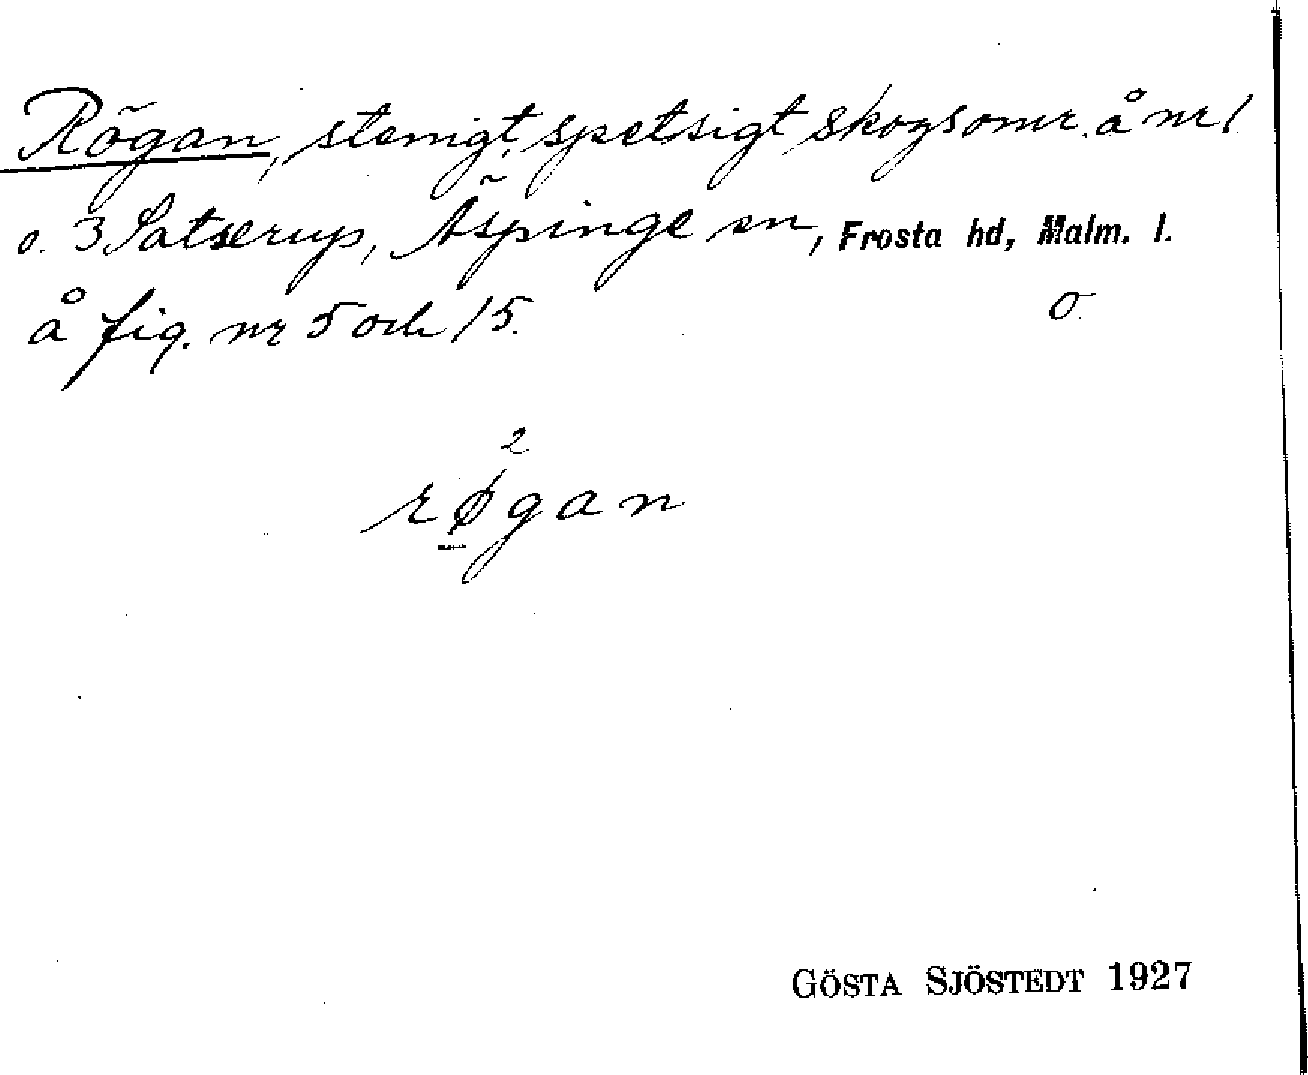 Rögan, stenigt, spetsigt skogsomr. å nr 1
o. 3 Satserup, Äspinge sn, Frosta hd, Malm. l.
å fig. nr 5 och 15. O.
2
røgan
GÖSTA SJÖSTEDT 1927